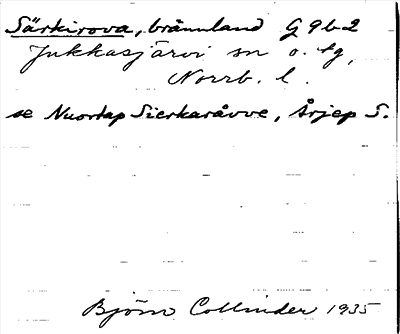 Särkirova, brännland G9b2
Jukkasjärvi sn o. tg,
Norrb. l.
se Nuortap Sierkaråvve, Årjep S.
Björn Collinder 1935